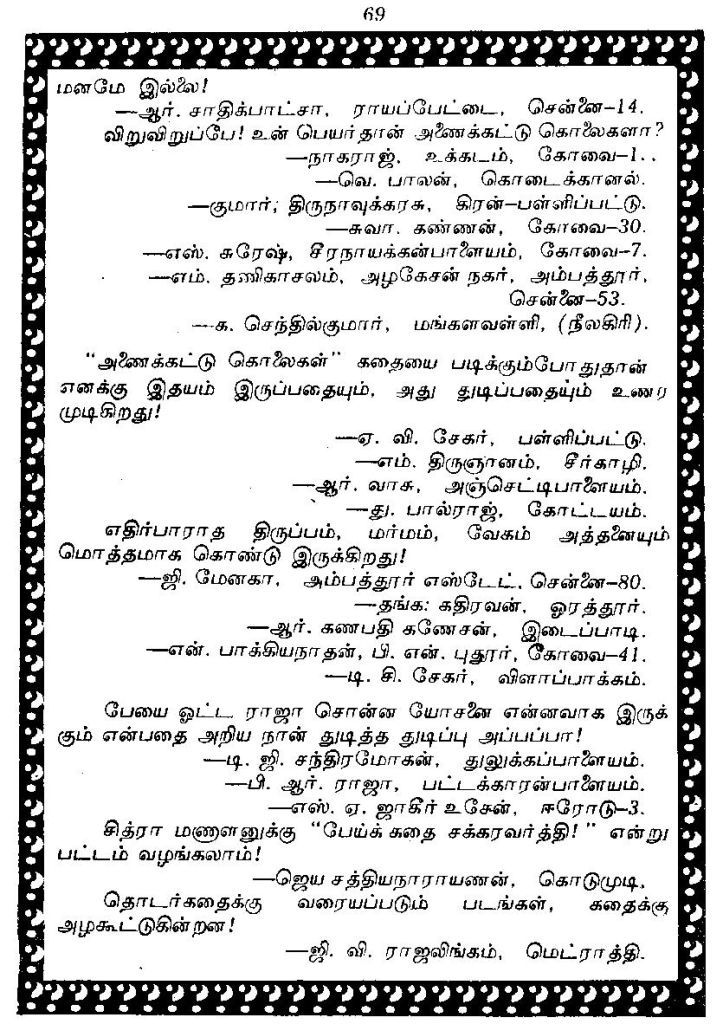 69
மனமே இல்லை!
—ஆர். சாதிக்பாட்சா, ராயப்பேட்டை, சென்னை–14.
விறுவிறுப்பே! உன் பெயர்தான் அணைக்கட்டு கொலைகளா?
—நாகராஜ், உக்கடம், கோவை–1..
—வெ. பாலன், கொடைக்கானல்.
—குமார்; திருநாவுக்கரசு, கிரன்–பள்ளிப்பட்டு.
—சுவா. கண்ணன், கோவை–30.
—எஸ். சுரேஷ், சீரநாயக்கன்பாளையம், கோவை–7.
—எம். தணிகாசலம், அழகேசன் நகர், அம்பத்தூர்,
சென்னை–53.
—க. செந்தில்குமார், மங்களவள்ளி, (நீலகிரி).
“அணைக்கட்டு கொலைகள்” கதையை படிக்கும்போதுதான்
எனக்கு இதயம் இருப்பதையும், அது துடிப்பதையும் உணர
முடிகிறது!
—ஏ. வி. சேகர், பள்ளிப்பட்டு.
—எம். திருஞானம், சீர்காழி.
—ஆர். வாசு, அஞ்செட்டிபாளையம்.
—து. பால்ராஜ், கோட்டயம்.
எதிர்பாராத திருப்பம், மர்மம், வேகம் அத்தனையும்
மொத்தமாக கொண்டு இருக்கிறது!
—ஜி. மேனகா, அம்பத்தூர் எஸ்டேட், சென்னை–80.
—தங்க: கதிரவன், ஓரத்தூர்.
—ஆர். கணபதி கணேசன், இடைப்பாடி.
—என். பாக்கியநாதன், பி. என். புதூர், கோவை–41.
—டி. சி. சேகர், விளாப்பாக்கம்.
பேயை ஓட்ட ராஜா சொன்ன யோசனை என்னவாக இருக்
கும் என்பதை அறிய நான் துடித்த துடிப்பு அப்பப்பா!
—டி. ஜி. சந்திரமோகன், துலுக்கப்பாளையம்.
—பி. ஆர். ராஜா, பட்டக்காரன்பாளையம்.
—எஸ். ஏ. ஜாகீர் உசேன், ஈரோடு–3.
சித்ரா மணாளனுக்கு “பேய்க் கதை சக்கரவர்த்தி!” என்று
பட்டம் வழங்கலாம்!
—ஜெய சத்தியநாராயணன், கொடுமுடி,
தொடர்கதைக்கு வரையப்படும் படங்கள், கதைக்கு
அழகூட்டுகின்றன!
—ஜி. வி. ராஜலிங்கம், மெட்ராத்தி.